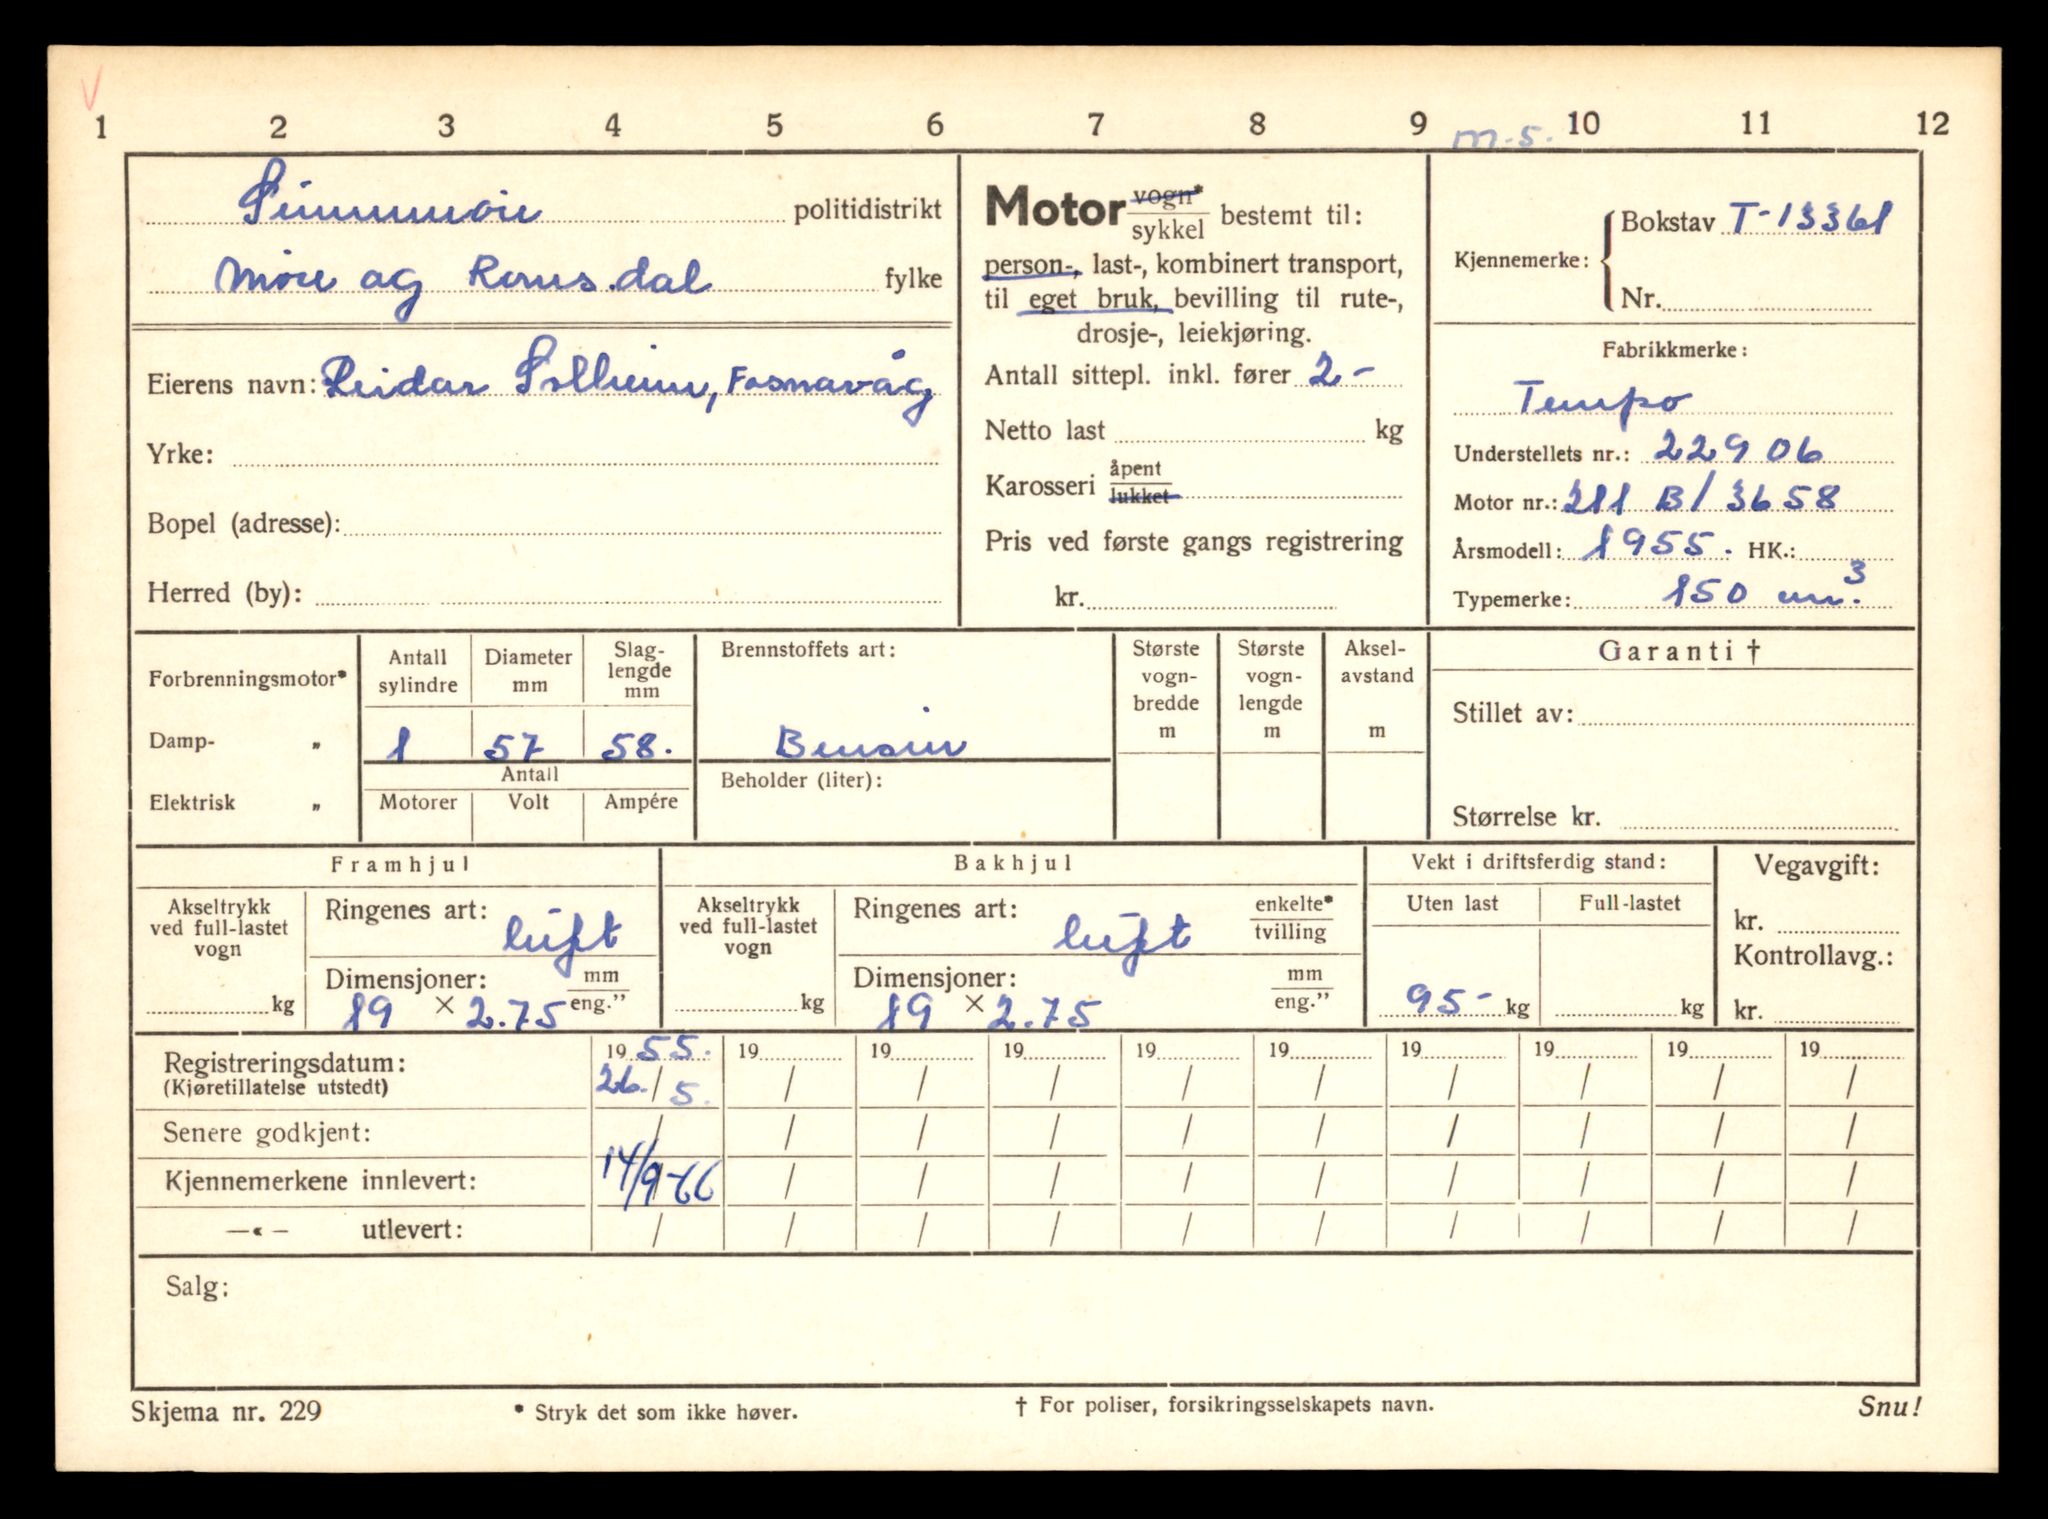 V
1 2 3 4 5 6 7 8 9 10 11 12
m-5.
Sunnmøre politidistrikt
Møre og Romsdal fylke
Eierens navn: Reidar Solheim, Fosnavåg
Yrke:
Bopel (adresse):
Herred (by):
Motor vogn* / sykkel bestemt til:
person-, last-, kombinert transport,
til eget bruk, bevilling til rute-,
drosje-, leiekjøring.
Antall sittepl. inkl. fører 2-
Netto last kg
Karosseri åpent / lukket
Pris ved første gangs registrering
kr.
Kjennemerke: Bokstav T-13361
Nr.
Fabrikkmerke:
Tempo
Understellets nr.: 22906
Motor nr.: 211 B/3658
Årsmodell: 1955. HK.:
Typemerke: 150 cm.3
Forbrenningsmotor*
Damp- „
Elektrisk „
Antall sylindre
Diameter mm
Slag-lengde mm
1 57 58.
Antall
Motorer Volt Ampére
Brennstoffets art:
Bensin
Beholder (liter):
Største vogn-bredde m
Største vogn-lengde m
Aksel-avstand m
Garanti †
Stillet av:
Størrelse kr.
Framhjul
Akseltrykk ved full-lastet vogn
kg
Ringenes art: luft
Dimensjoner: mm / eng."
19 × 2.75
Bakhjul
Akseltrykk ved full-lastet vogn
kg
Ringenes art: luft enkelte* / tvilling
Dimensjoner: mm / eng."
19 × 2.75
Vekt i driftsferdig stand:
Uten last Full-lastet
95- kg kg
Vegavgift:
kr.
Kontrollavg.:
kr.
Registreringsdatum: 19 55. 19 19 19 19 19 19 19 19 19
(Kjøretillatelse utstedt) 26./5. / / / / / / / / /
Senere godkjent: / / / / / / / / / /
Kjennemerkene innlevert: 14/9-66 / / / / / / / / /
—«— utlevert: / / / / / / / / / /
Salg:
Skjema nr. 229 * Stryk det som ikke høver. † For poliser, forsikringsselskapets navn. Snu!